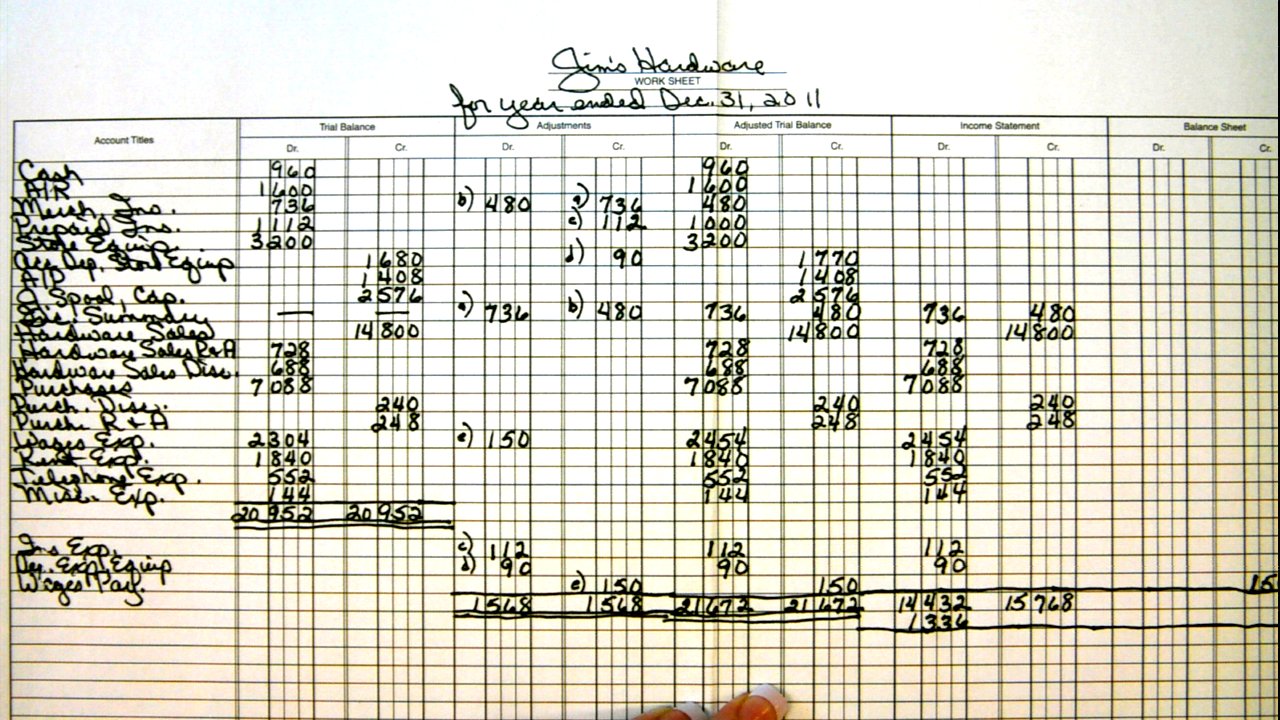 Jim's Hardware
WORK SHEET
for year ended Dec. 31, 2011
Account Titles Trial Balance Adjustments Adjusted Trial Balance Income Statement Balance Sheet
Dr. Cr. Dr. Cr. Dr. Cr. Dr. Cr. Dr. Cr.
Cash 960 960
A/R 1600 1600
Merch. Ins. 736 b) 480 a) 736 480
Prepaid Ins. 1112 c) 112 1000
Store Equip. 3200 3200
Acc. Dep. Store Equip 1680 d) 90 1770
A/P 1408 1408
J. Spool, Cap. 2576 2576
Inc. Summary — — a) 736 b) 480 736 480 736 480
Hardware Sales 14800 14800 14800
Hardware Sales R+A 728 728 728
Hardware Sales Disc. 688 688 688
Purchases 7088 7088 7088
Purch. Disc. 240 240 240
Purch. R + A 248 248 248
Wages Exp. 2304 e) 150 2454 2454
Rent Exp. 1840 1840 1840
Telephone Exp. 552 552 552
Misc. Exp. 144 144 144
20952 20952
Ins Exp. c) 112 112 112
Dep. Exp. Equip d) 90 90 90
Wages Pay. e) 150 150 15
1568 1568 21672 21672 14432 15768
1336